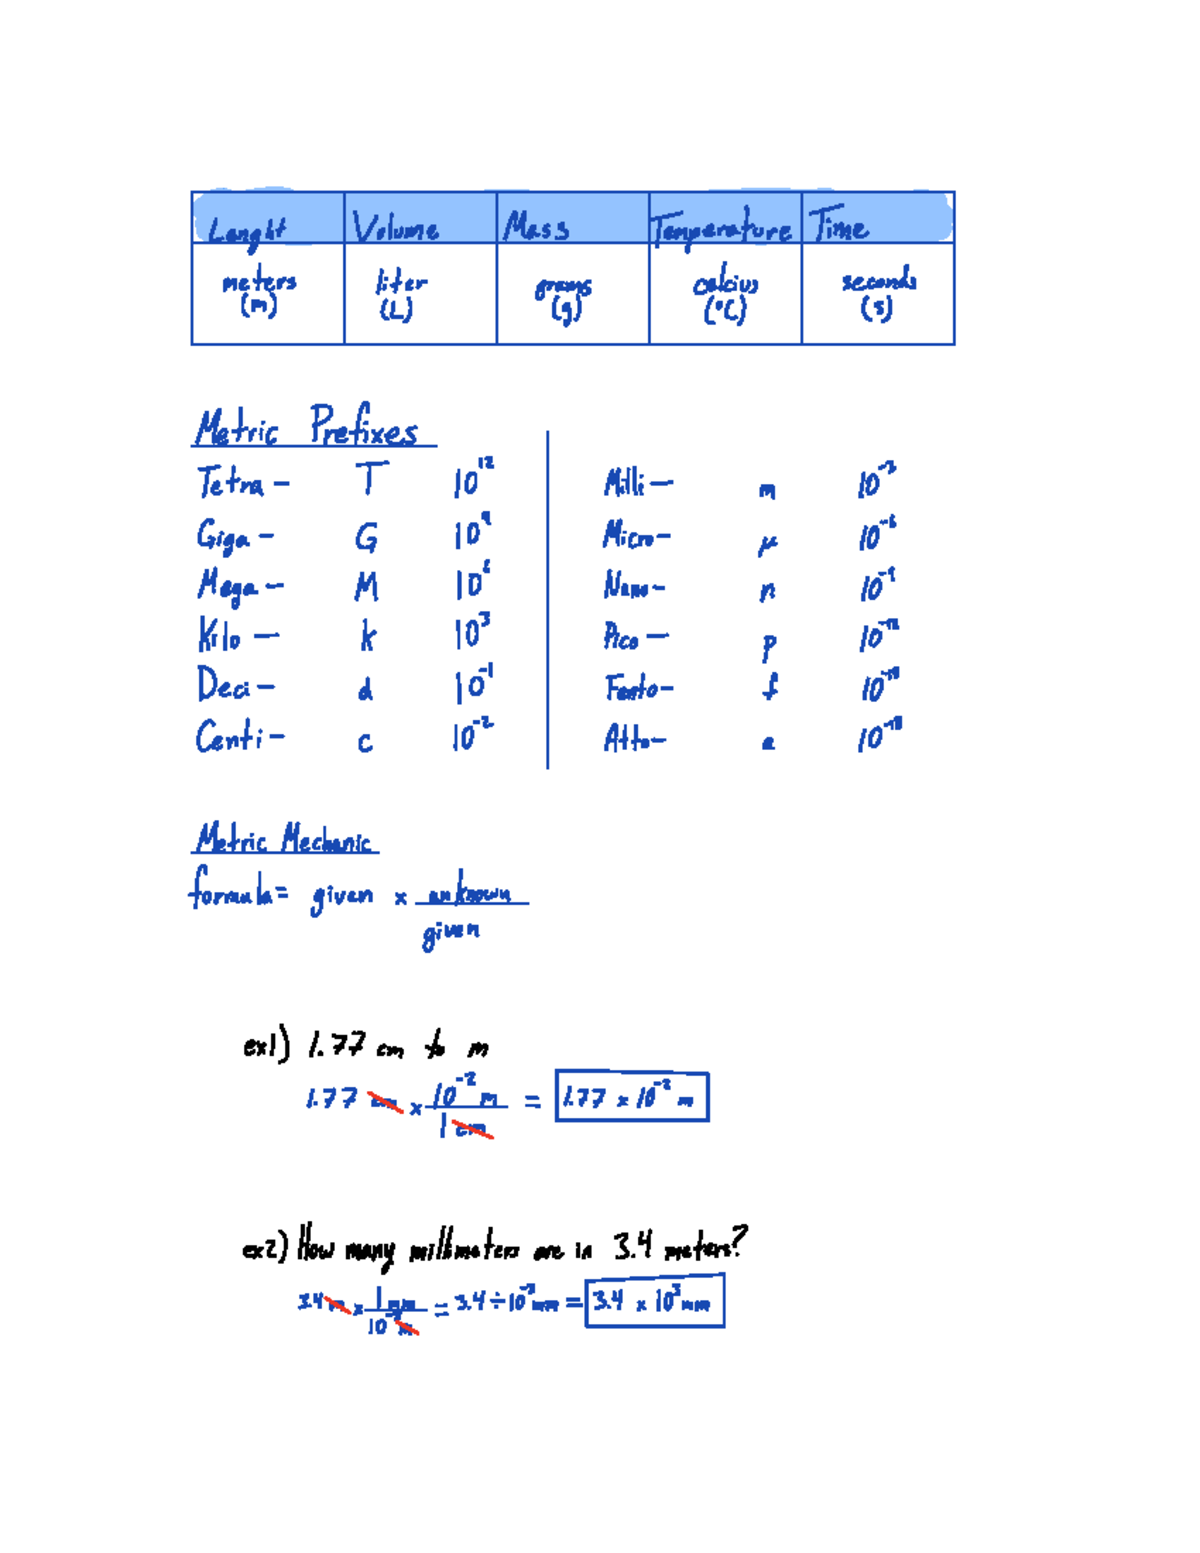 Lenght Volume Mass Temperature Time
meters liter grams celcius seconds
(m) (L) (g) (°C) (s)
Metric Prefixes
Tetra — T 10¹²
Giga — G 10⁹
Mega — M 10⁶
Kilo — k 10³
Deci — d 10⁻¹
Centi — c 10⁻²
Milli — m 10⁻³
Micro — μ 10⁻⁶
Nano — n 10⁻⁹
Pico — p 10⁻¹²
Femto — f
Atto — a 10⁻¹⁸
Metric Mechanic
formula = given x unknown
given
ex1) 1.77 cm to m
1.77 cm x 10⁻² m = 1.77 x 10⁻² m
1 cm
ex2) How many millimeters are in 3.4 meters?
3.4 m x 1 mm = 3.4 ÷ 10⁻³ mm = 3.4 x 10³ mm
10⁻³ m